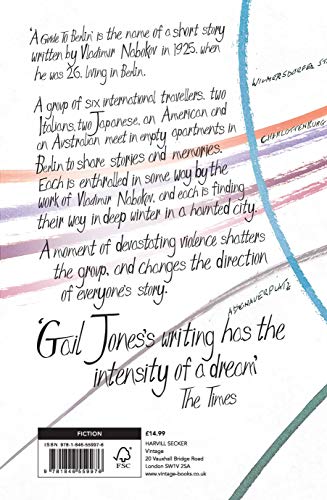 'A Guide To Berlin' is the name of a short story
written by Vladimir Nabokov in 1925, when
he was 26, living in Berlin.
WILMERSDORFER ST
A group of six international travellers, two
Italians, two Japanese, an American and
an Australian meet in empty apartments in
CHARLOTTENBURG
Berlin to share stories and memories.
Each is enthralled in some way by the
work of Vladimir Nabokov, and each is finding
their way in deep winter in a haunted city.
A moment of devastating violence shatters
the group, and changes the direction
of everyone's story.
ADENAUERPLATZ
'Gail Jones's writing has the
intensity of a dream'
The Times
FICTION
ISBN 978-1-846-55997-6
9 781846 559976
FSC
£14.99
HARVILL SECKER
Vintage
20 Vauxhall Bridge Road
London SW1V 2SA
www.vintage-books.co.uk